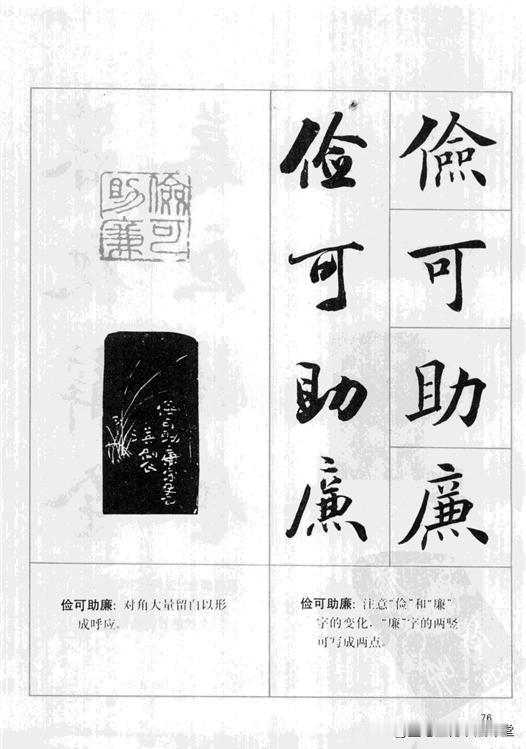 儉可助廉
俭可助廉
儉可助廉
俭可助廉:对角大量留白以形
成呼应。
俭可助廉:注意“俭”和“廉”
字的变化,“廉”字的两竖
可写成两点。
76